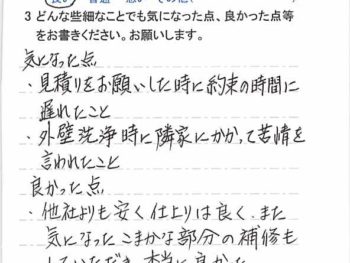 3 どんな些細なことでも気になった点、良かった点等
をお書きください。お願いします。
気になった点
・見積りをお願いした時に約束の時間に
遅れたこと
・外壁洗浄時に隣家にかかって苦情を
言われたこと
良かった点
・他社よりも安く仕上りは良く、また
気になったこまかな部分の補修も
していただき本当に良かった